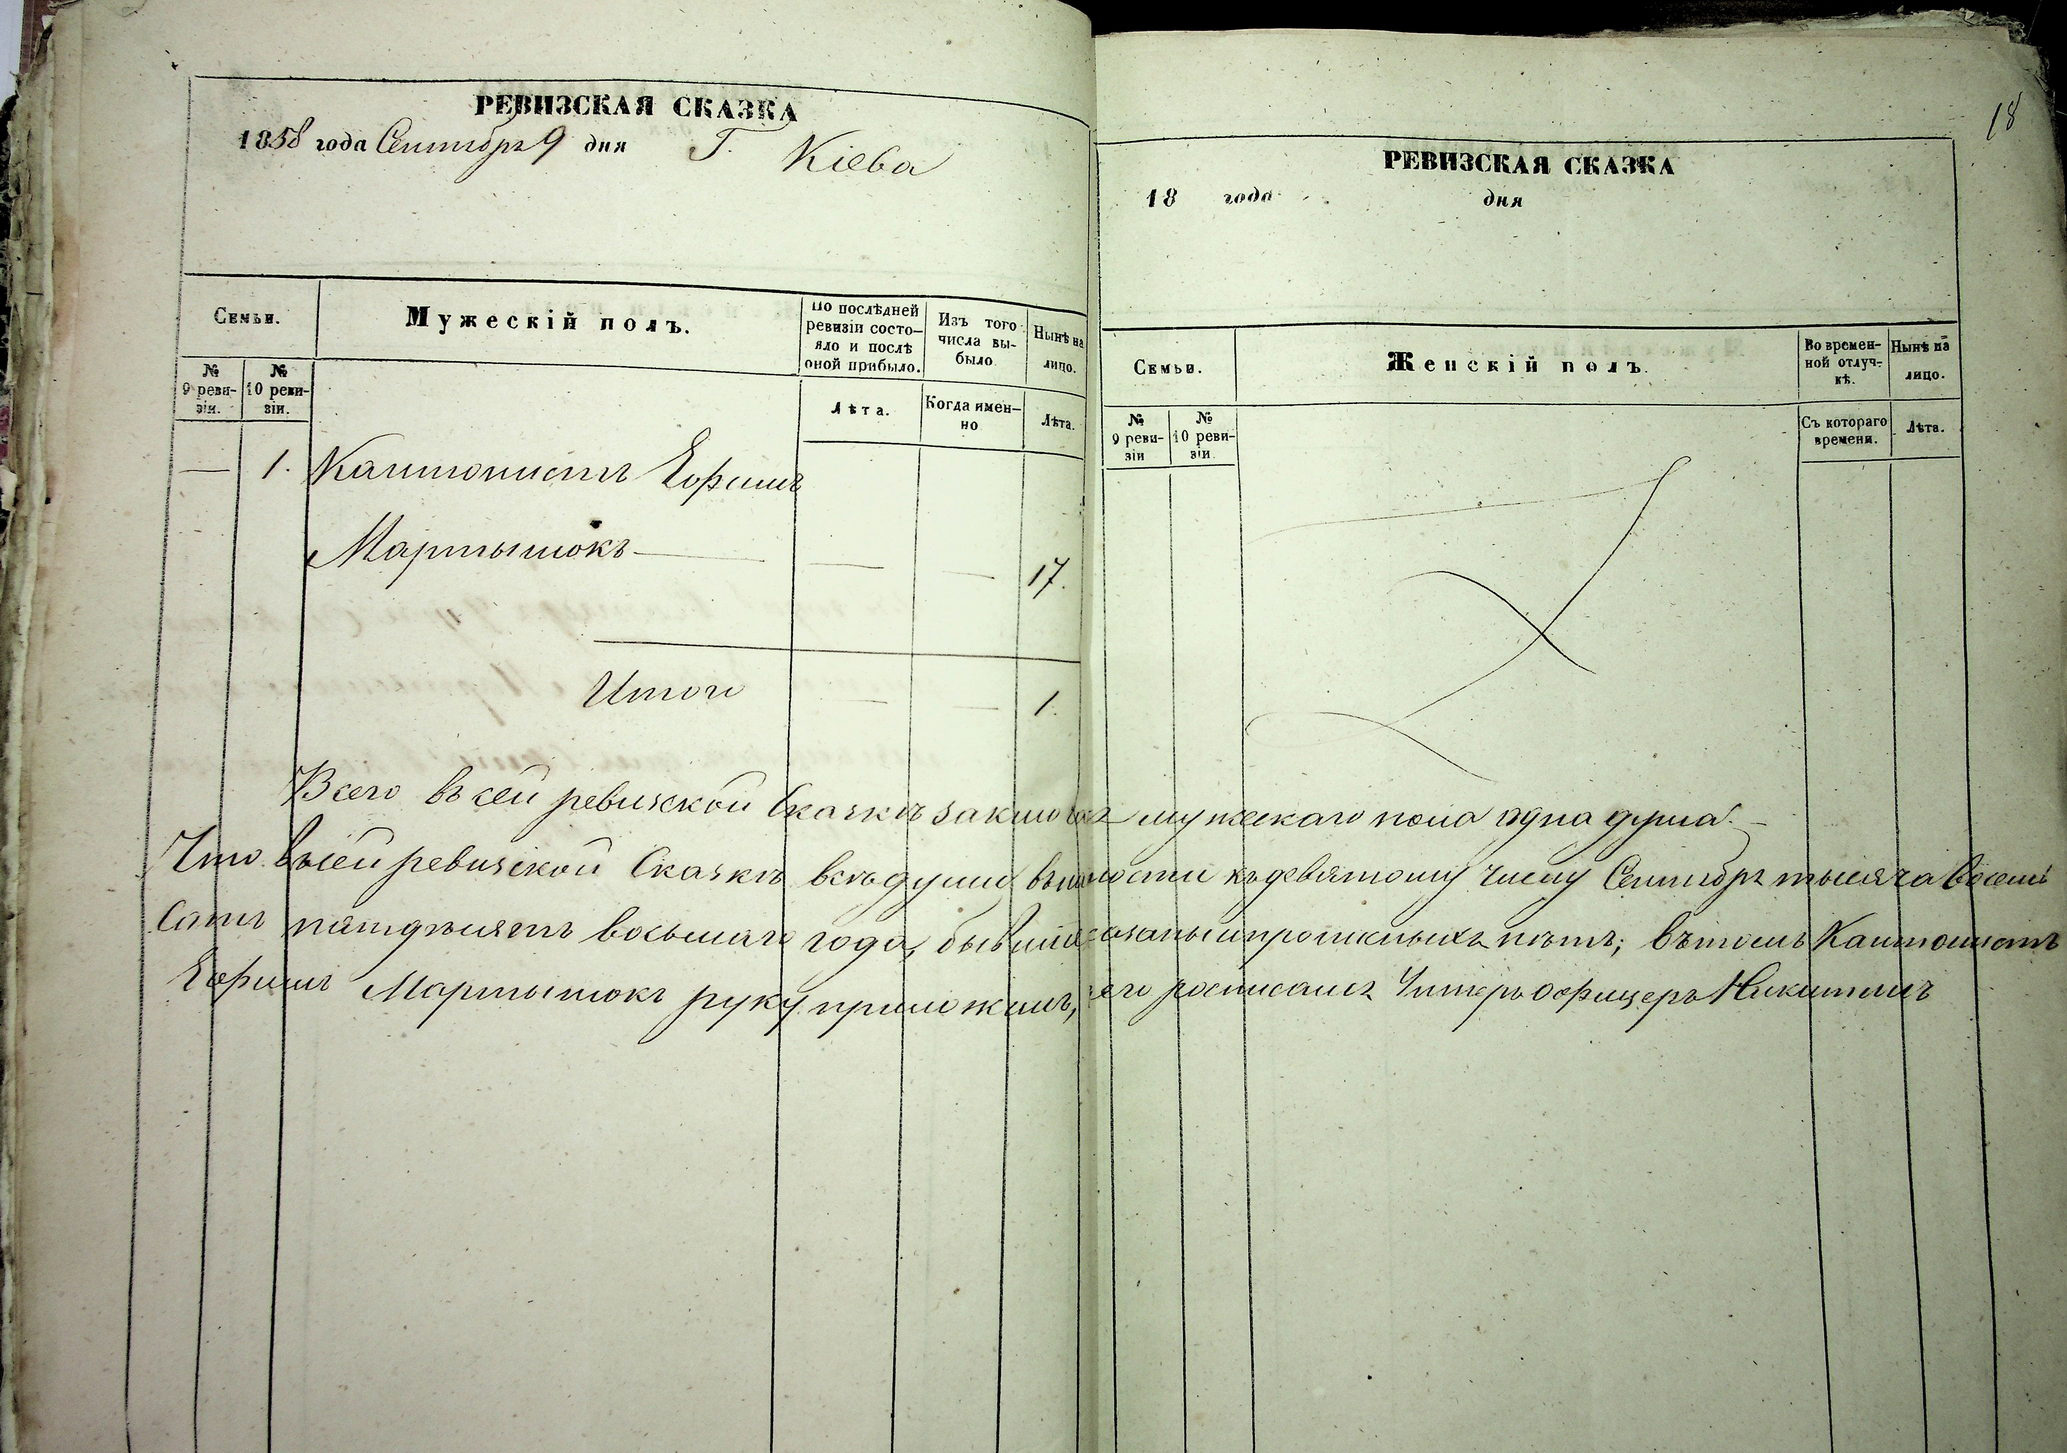 РЕВИЗСКАЯ СКАЗКА
1858 года Сентября 9 дня Г. Кіева
Семьи.
Мужескій полъ.
По послѣдней ревизіи состояло и послѣ оной прибыло.
Изъ того числа выбыло
Нынѣ на лицо.
№ 9 ревизіи.
№ 10 ревизіи.
Лѣта.
Когда именно
Лѣта.
— 1. Кантонистъ Ефимъ
Мартынюкъ — — — 17.
Итого — — 1.
18
РЕВИЗСКАЯ СКАЗКА
18 года дня
Семьи.
Женскій полъ.
Во временной отлучкѣ.
Нынѣ на лицо.
№ 9 ревизіи
№ 10 ревизіи
Съ котораго времени.
Лѣта.
Всего въ сей ревизской Сказкѣ мужескаго пола одна душа. —
Что въ сей ревизской Сказкѣ всѣ души къ девятому числу Сентября тысяча восемь
сотъ пятдесятъ восьмаго года, нѣтъ; въ томъ Кантонистъ
Ефимъ Мартынюкъ руку приложилъ, его росписался Унтеръ офицеръ